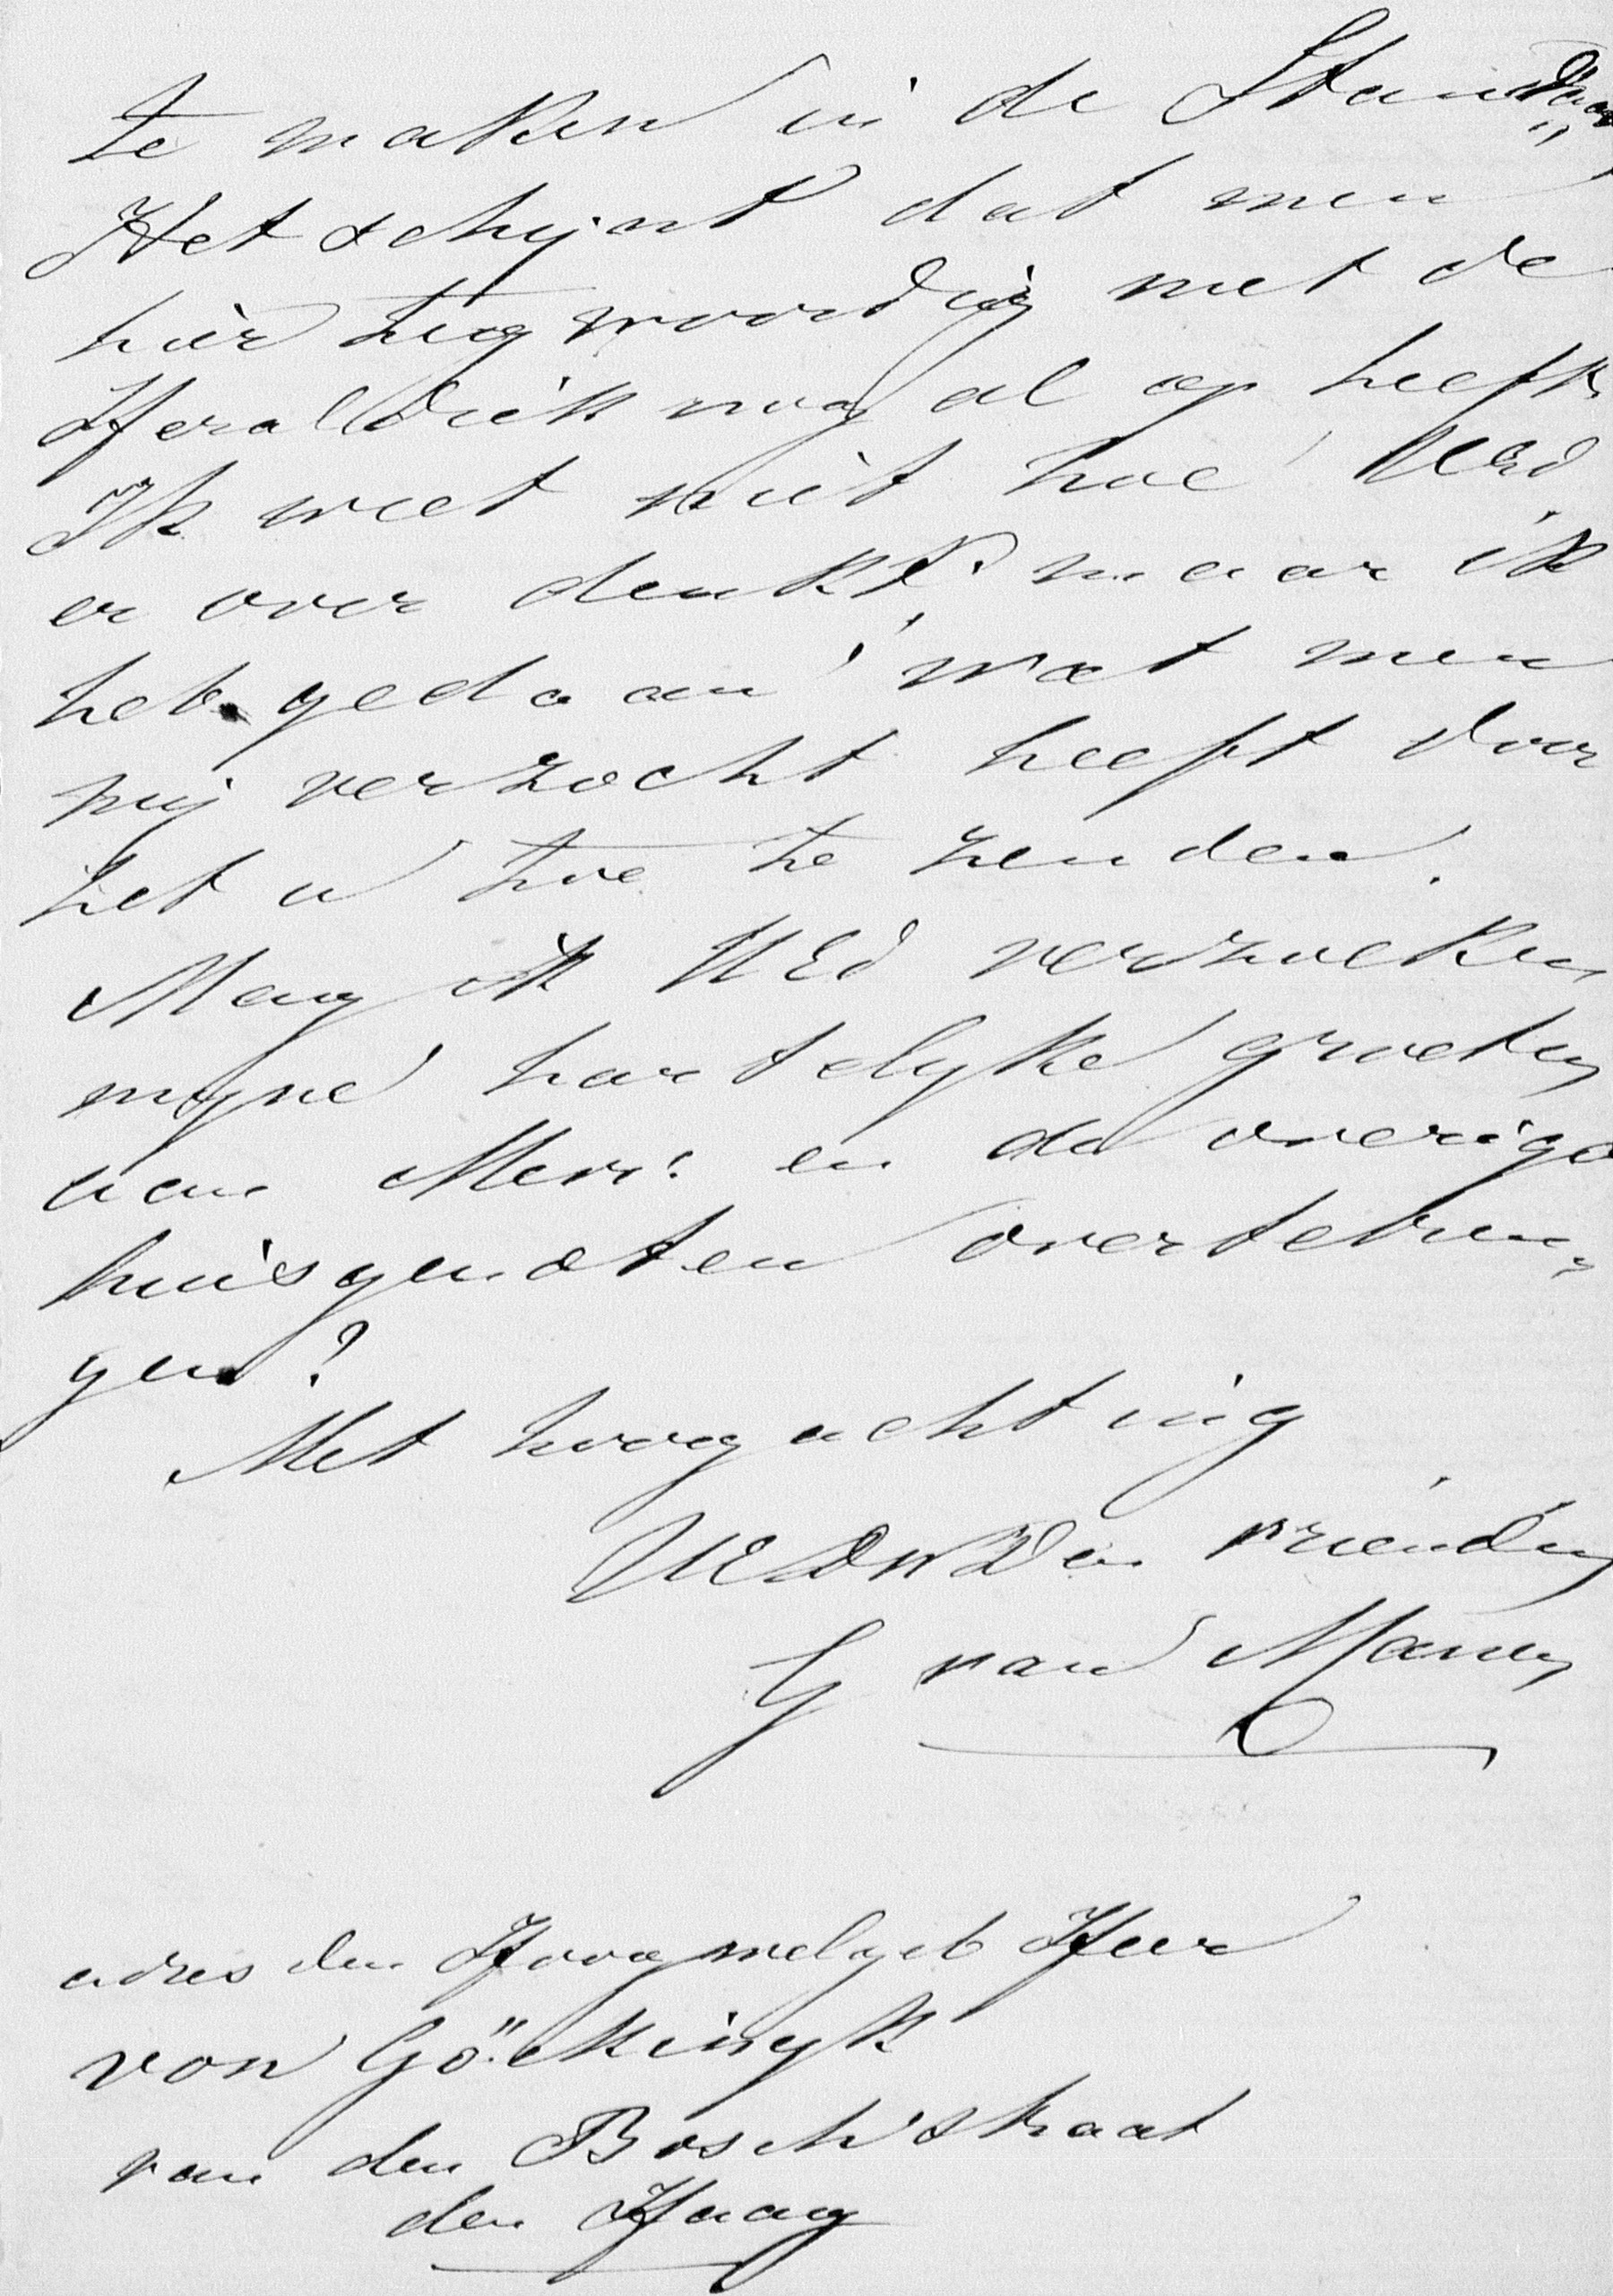 te maken in de Standaar
Het schijnt dat men
hier tegwoordig met de
Heraldiek nog al op heeft.
Ik weet niet hoe UEd
er over denkt, maar ik
heb gedaan wat men
mij verzocht heeft door
het u toe te zenden.
Mag ik UEd verzoeken
mijne hartelijke groeten
aan Mevr: en de overige
huisgenoten overtebren,
gen?
Met hoogachting
UEDWDn vriendin
G van
adres den Hoogwelgeb Heer
von Göckingk
van den Boschstraat
den Haag